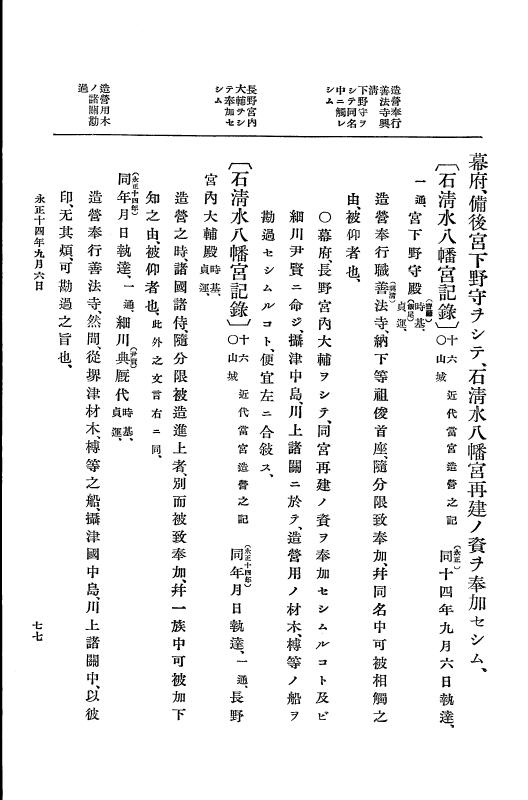 造營奉行
善法寺興
清
下野守ヲ
シテ同名
中ニ觸レ
シム
長野宮内
大輔ヲシ
テ奉加セ
シム
造營用木
ノ諸關勘
過
幕府、備後宮下野守ヲシテ、石清水八幡宮再建ノ資ヲ奉加セシム、
〔石清水八幡宮記錄〕十六○山城 近代當宮造營之記 同(永正)十四年九月六日執達、
一通、宮下野守殿 時基(齋藤)、貞運(飯尾)、
造營奉行職善(興清)法寺、納下等祖俊首座、隨分限致奉加、幷同名中可被相觸之
由、被仰者也、
○幕府、長野宮内大輔ヲシテ、同宮再建ノ資ヲ奉加セシムルコト及ビ
細川尹賢ニ命ジ、攝津中島、川上諸關ニ於テ、造營用ノ材木、榑等ノ船ヲ
勘過セシムルコト、便宜左ニ合敍ス、
〔石清水八幡宮記錄〕十六○山城 近代當宮造營之記 同(永正十四年)年月日執達、一通、長野
宮内大輔殿 時基、貞運、
造營之時、諸國諸侍、隨分限被造進上者、別而被致奉加、幷一族中可被加下
知之由、被仰者也、此外之文言右ニ同、
同(永正十四年)年月日執達、一通、細川典(尹賢)厩代 時基、貞運、
造營奉行善法寺、然間、從堺津材木、榑等之船、攝津國中島、川上諸關中、以彼
印、无其煩、可勘過之旨也、
永正十四年九月六日
七七